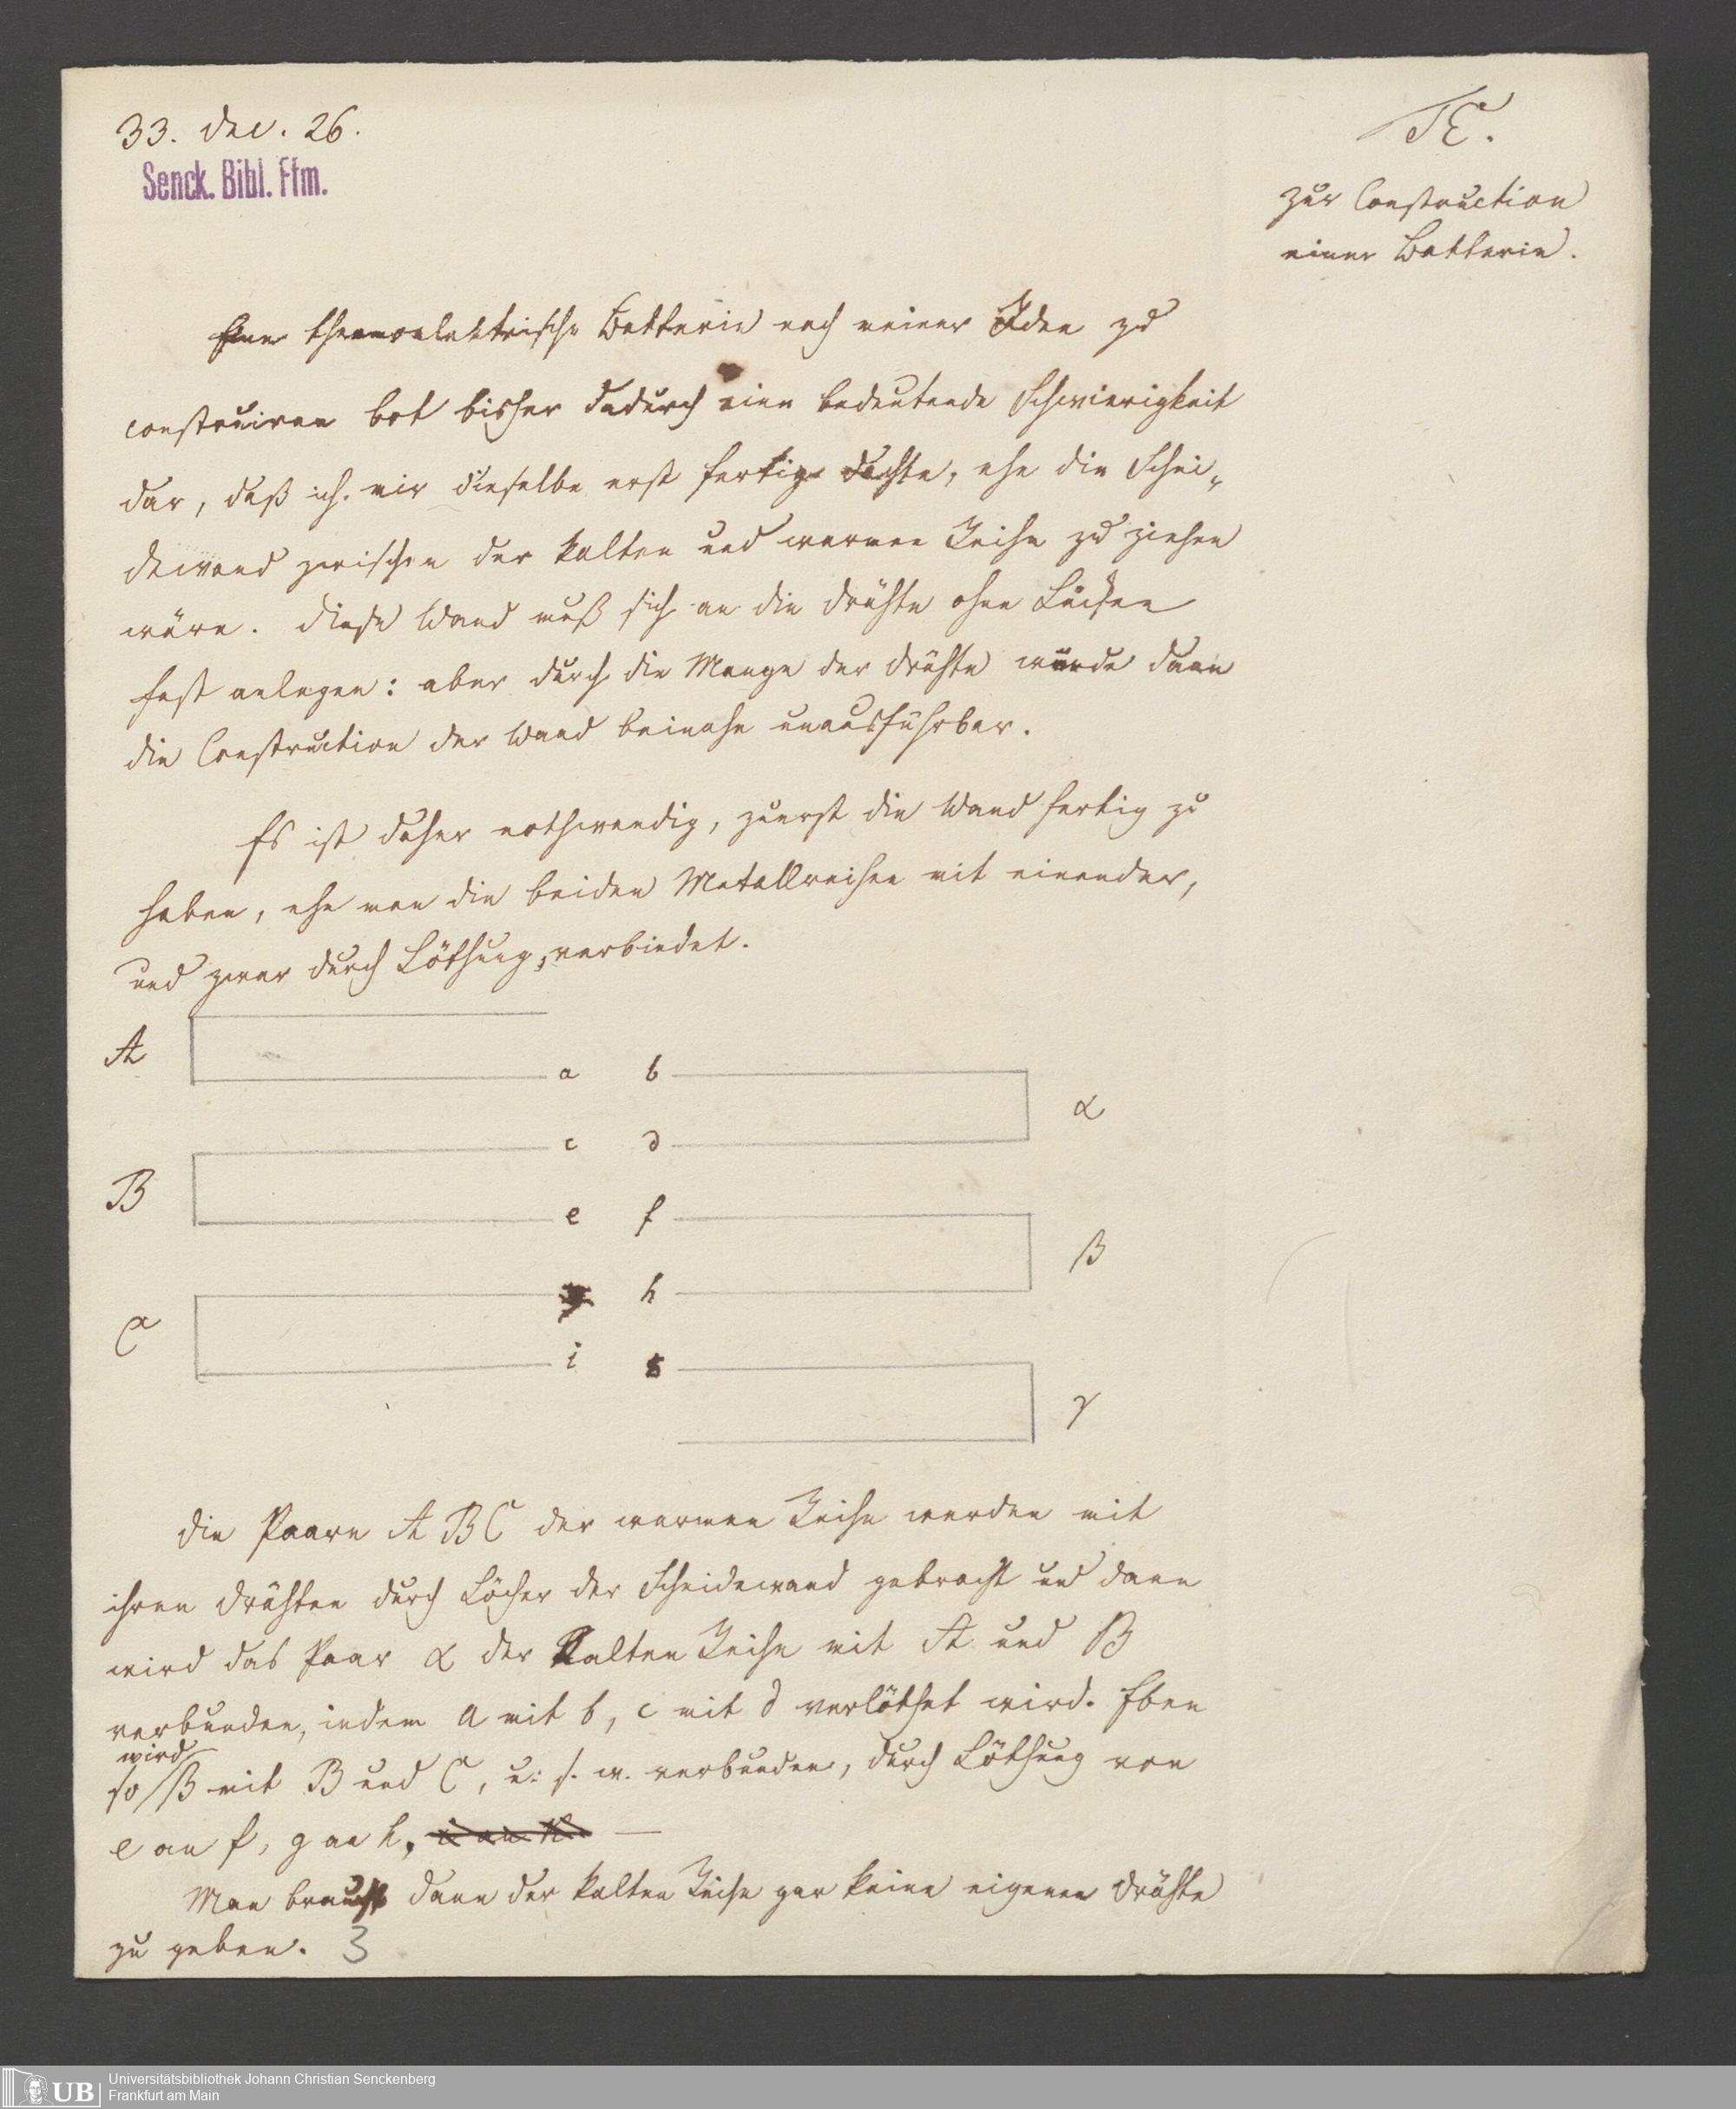 33. Dec. 26.
Senck. Bibl. Ffm.
TE.
zur Construction
einer Batterie.
Eine thermoelektrische Batterie nach meiner Idee zu
construiren bot bisher dadurch eine bedeutende Schwierigkeit
dar, daß ich mir dieselbe erst fertig dachte, ehe die Schei-
dewand zwischen der kalten und warmen Reihe zu ziehen
wäre. Diese Wand muß sich an die Drähte ohne Lücken
fest anlegen: aber durch die Menge der Drähte würde dann
die Construction der Wand beinahe unausführbar.
Es ist daher nothwendig, zuerst die Wand fertig zu
haben, ehe man die beiden Metallreihen mit einander,
und zwar durch Löthung, verbindet.
A
a b
α
c d
B
e f
β
g h
C
i k
γ
Die Paare A B C der warmen Reihe werden mit
ihren Drähten durch Löcher der Scheidewand gebracht und dann
wird das Paar α der kalten Reihe mit A und B
verbunden, indem a mit b, c mit d verlöthet wird. Eben
wird
so β mit B und C, u. s. w. verbunden, durch Löthung von
e an f, g an h, i an k. —
Man braucht dann der kalten Reihe gar keine eigenen Drähte
zu geben. 3
UB
Universitätsbibliothek Johann Christian Senckenberg
Frankfurt am Main